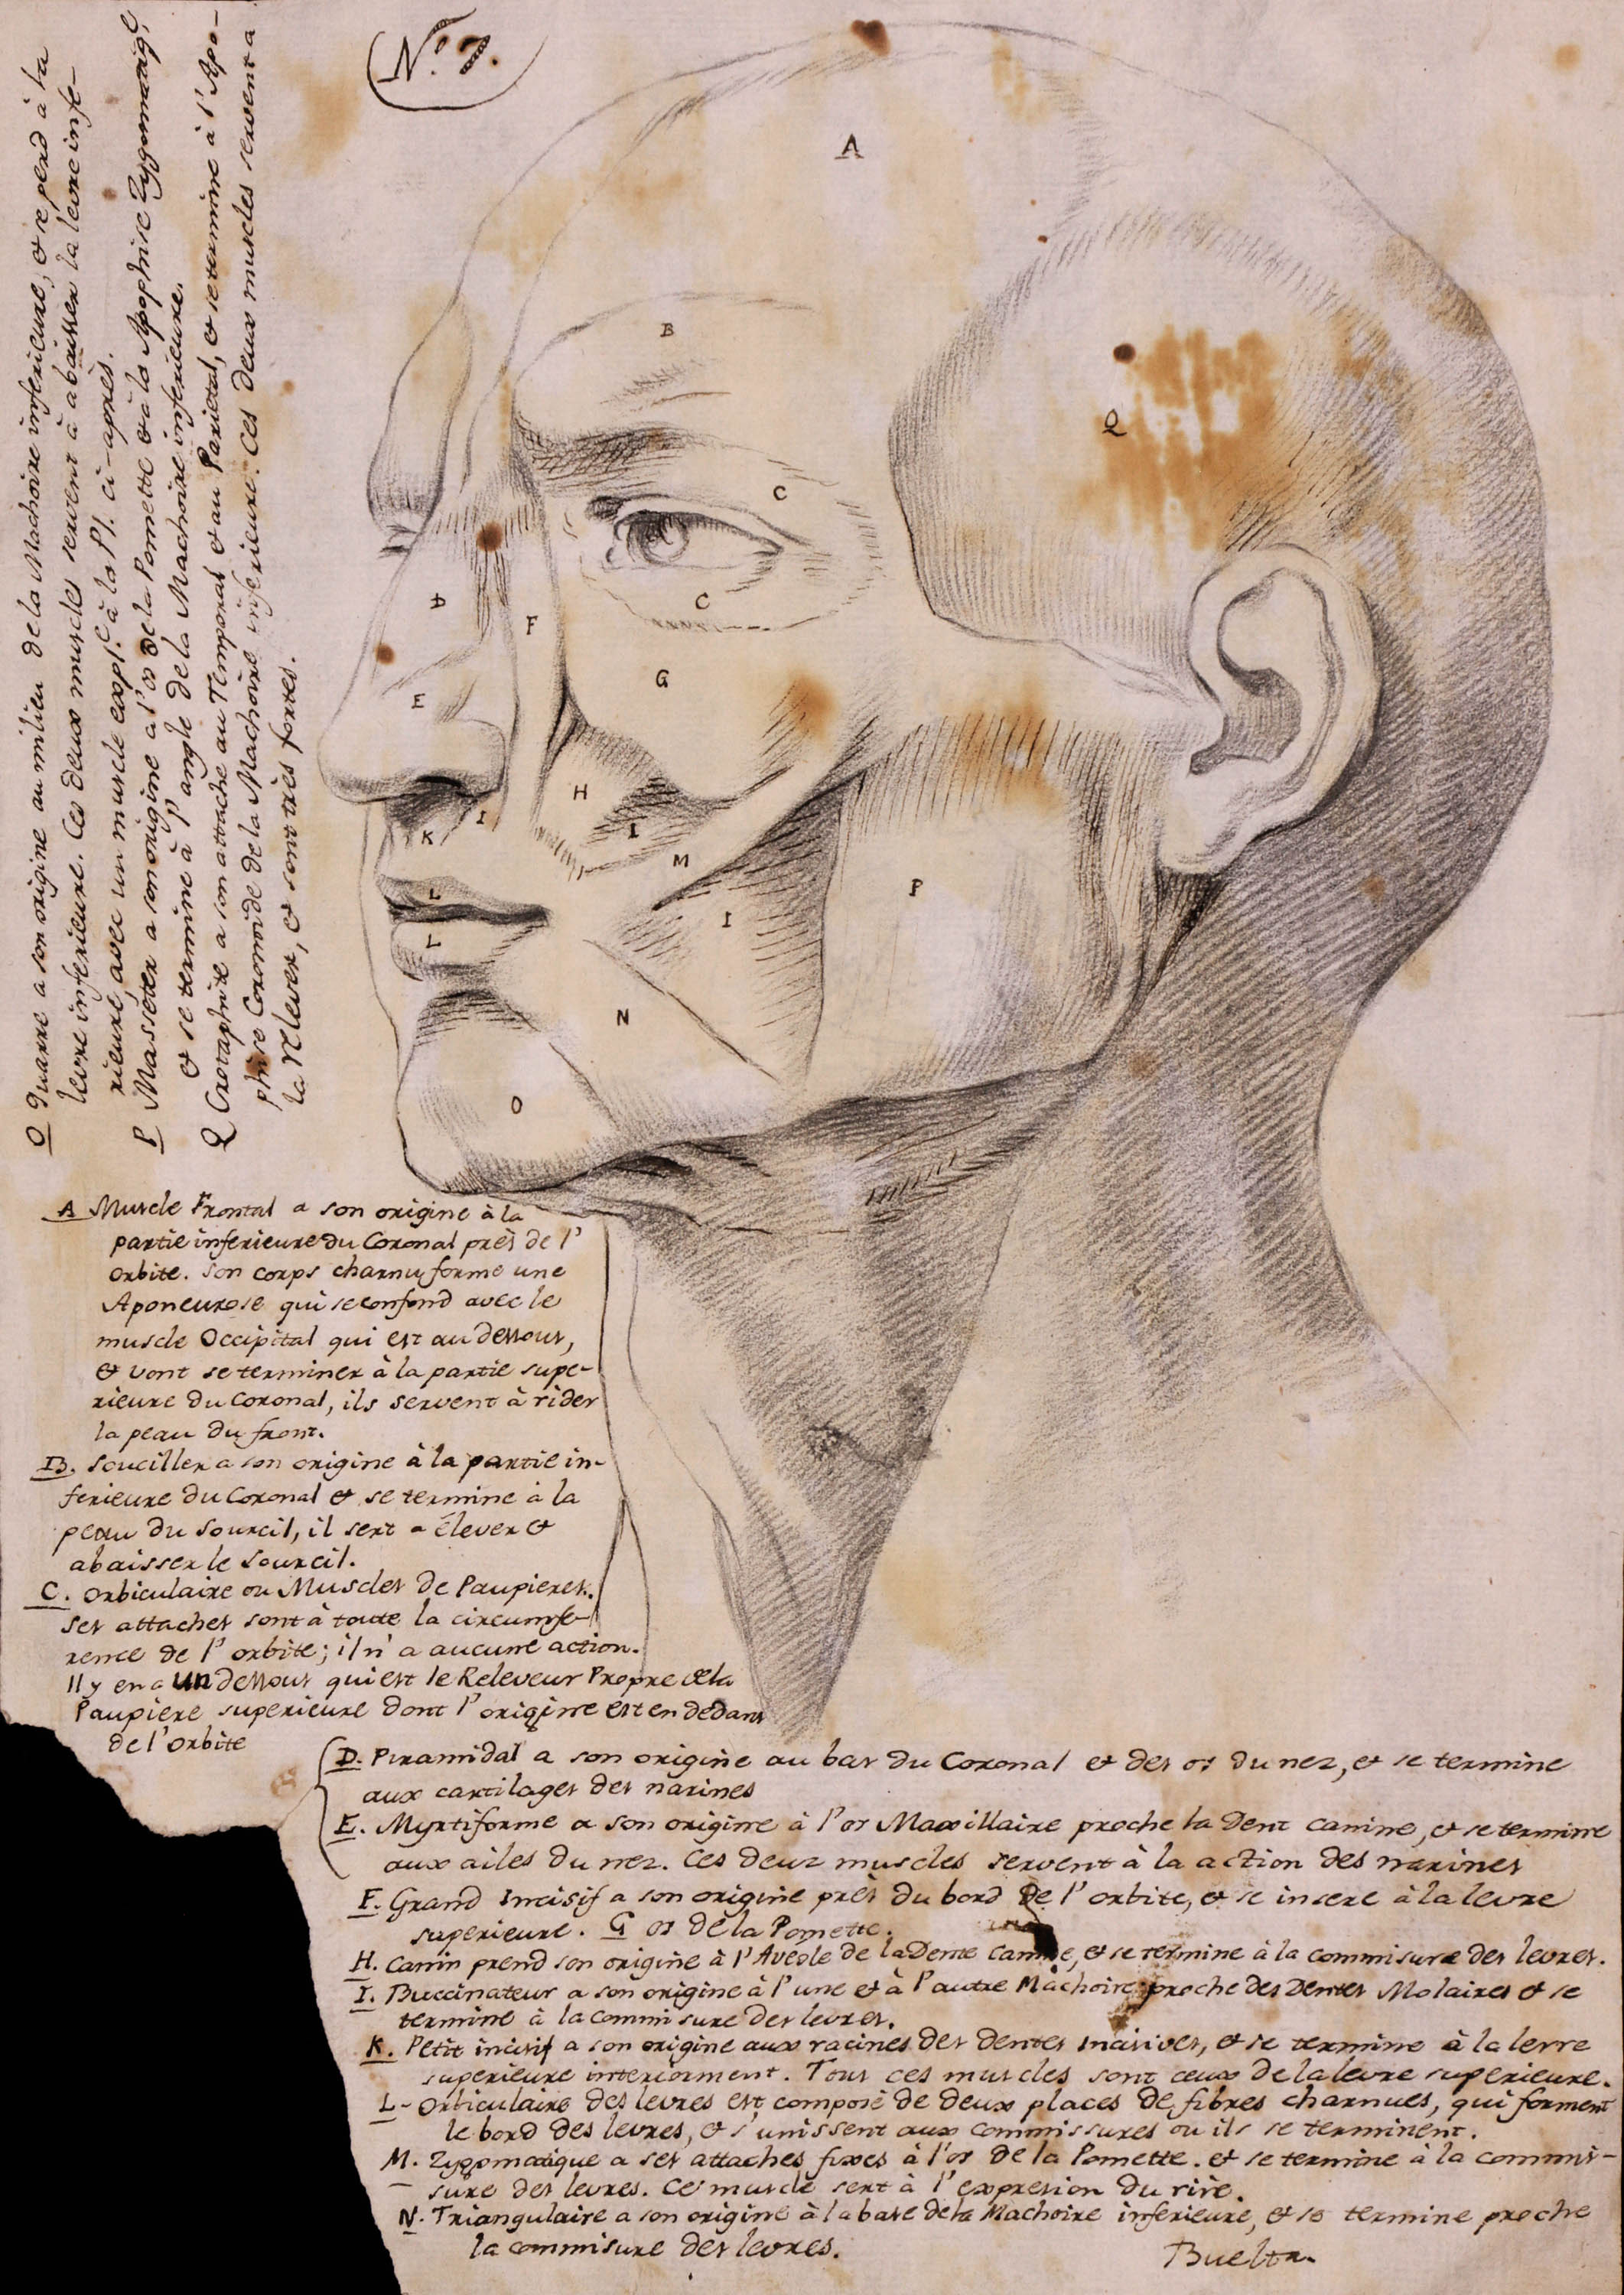 N.º 7.
A
B
C
C
D
E
F
G
H
I
I
I
K
L
L
M
N
O
P
Q
O quarre a son origine au milieu de la Machoire inferieure, & se perd à la
levre inferieure. Ces deux muscles servent à abaisser la levre infe-
rieure, avec un muscle expl.é à la Pl. ci-après.
P Masseter a son origine a l'os de la Pomette & à la Apophise Zygomatiq.e
& se termine à l'angle de la Machoire inferieure.
Q Crotaphite a son attache au Temporal & au Parietal, & se termine à l'Apo-
phise Coronoide de la Machoire inferieure. Ces deux muscles servent a
la relever, & sont très fortes.
A Muscle Frontal a son origine à la
partie inferieure du Coronal près de l'
orbite. Son corps charnu forme une
Aponeurose qui se confond avec le
muscle Occipital qui est au dessous,
& vont se terminer à la partie supe-
rieure du Coronal, ils servent à rider
la peau du front.
B. Souciller a son origine à la partie in-
ferieure du Coronal & se termine à la
peau du Sourcil, il sert a élever &
abaisser le Sourcil.
C. Orbiculaire ou Muscles de Paupieres.
Ses attaches sont à toute la circumfe-
rence de l'orbite; il n'a aucune action.
Il y en a un dessous qui est le Releveur Propre de la
Paupiere superieure dont l'origine est en dedans
de l'Orbite
D. Piramidal a son origine au bas du Coronal & des os du nez, & se termine
aux cartilages des narines
E. Myrtiforme a son origine à l'os Maxillaire proche la Dent canine, & se termine
aux ailes du nez. Ces deux muscles servent à la action des narines
F. Grand Incisif a son origine près du bord de l'orbite, & se insere à la levre
superieure. G os de la Pomette.
H. Canin prend son origine à l'Aveole de la Dente canine, & se termine à la commisure des levres.
I. Buccinateur a son origine à l'une et à l'autre Machoire proche des Dentes Molaires & se
termine à la commisure des levres.
K. Petit incisif a son origine aux racines des dentes incisives, & se termine à la levre
superieure interiorment. Tous ces muscles sont ceux de la levre superieure.
L- Orbiculaire des levres est composé de deux places de fibres charnues, qui forment
le bord des levres, & s'unissent aux commissures ou ils se terminent.
M. Zygomatique a ses attaches fixes à l'os de la Pomette. et se termine à la commi-
sure des levres. Ce muscle sert à l'expresion du rire.
N. Triangulaire a son origine à la base de la Machoire inferieure, & se termine proche
la commisure des levres.